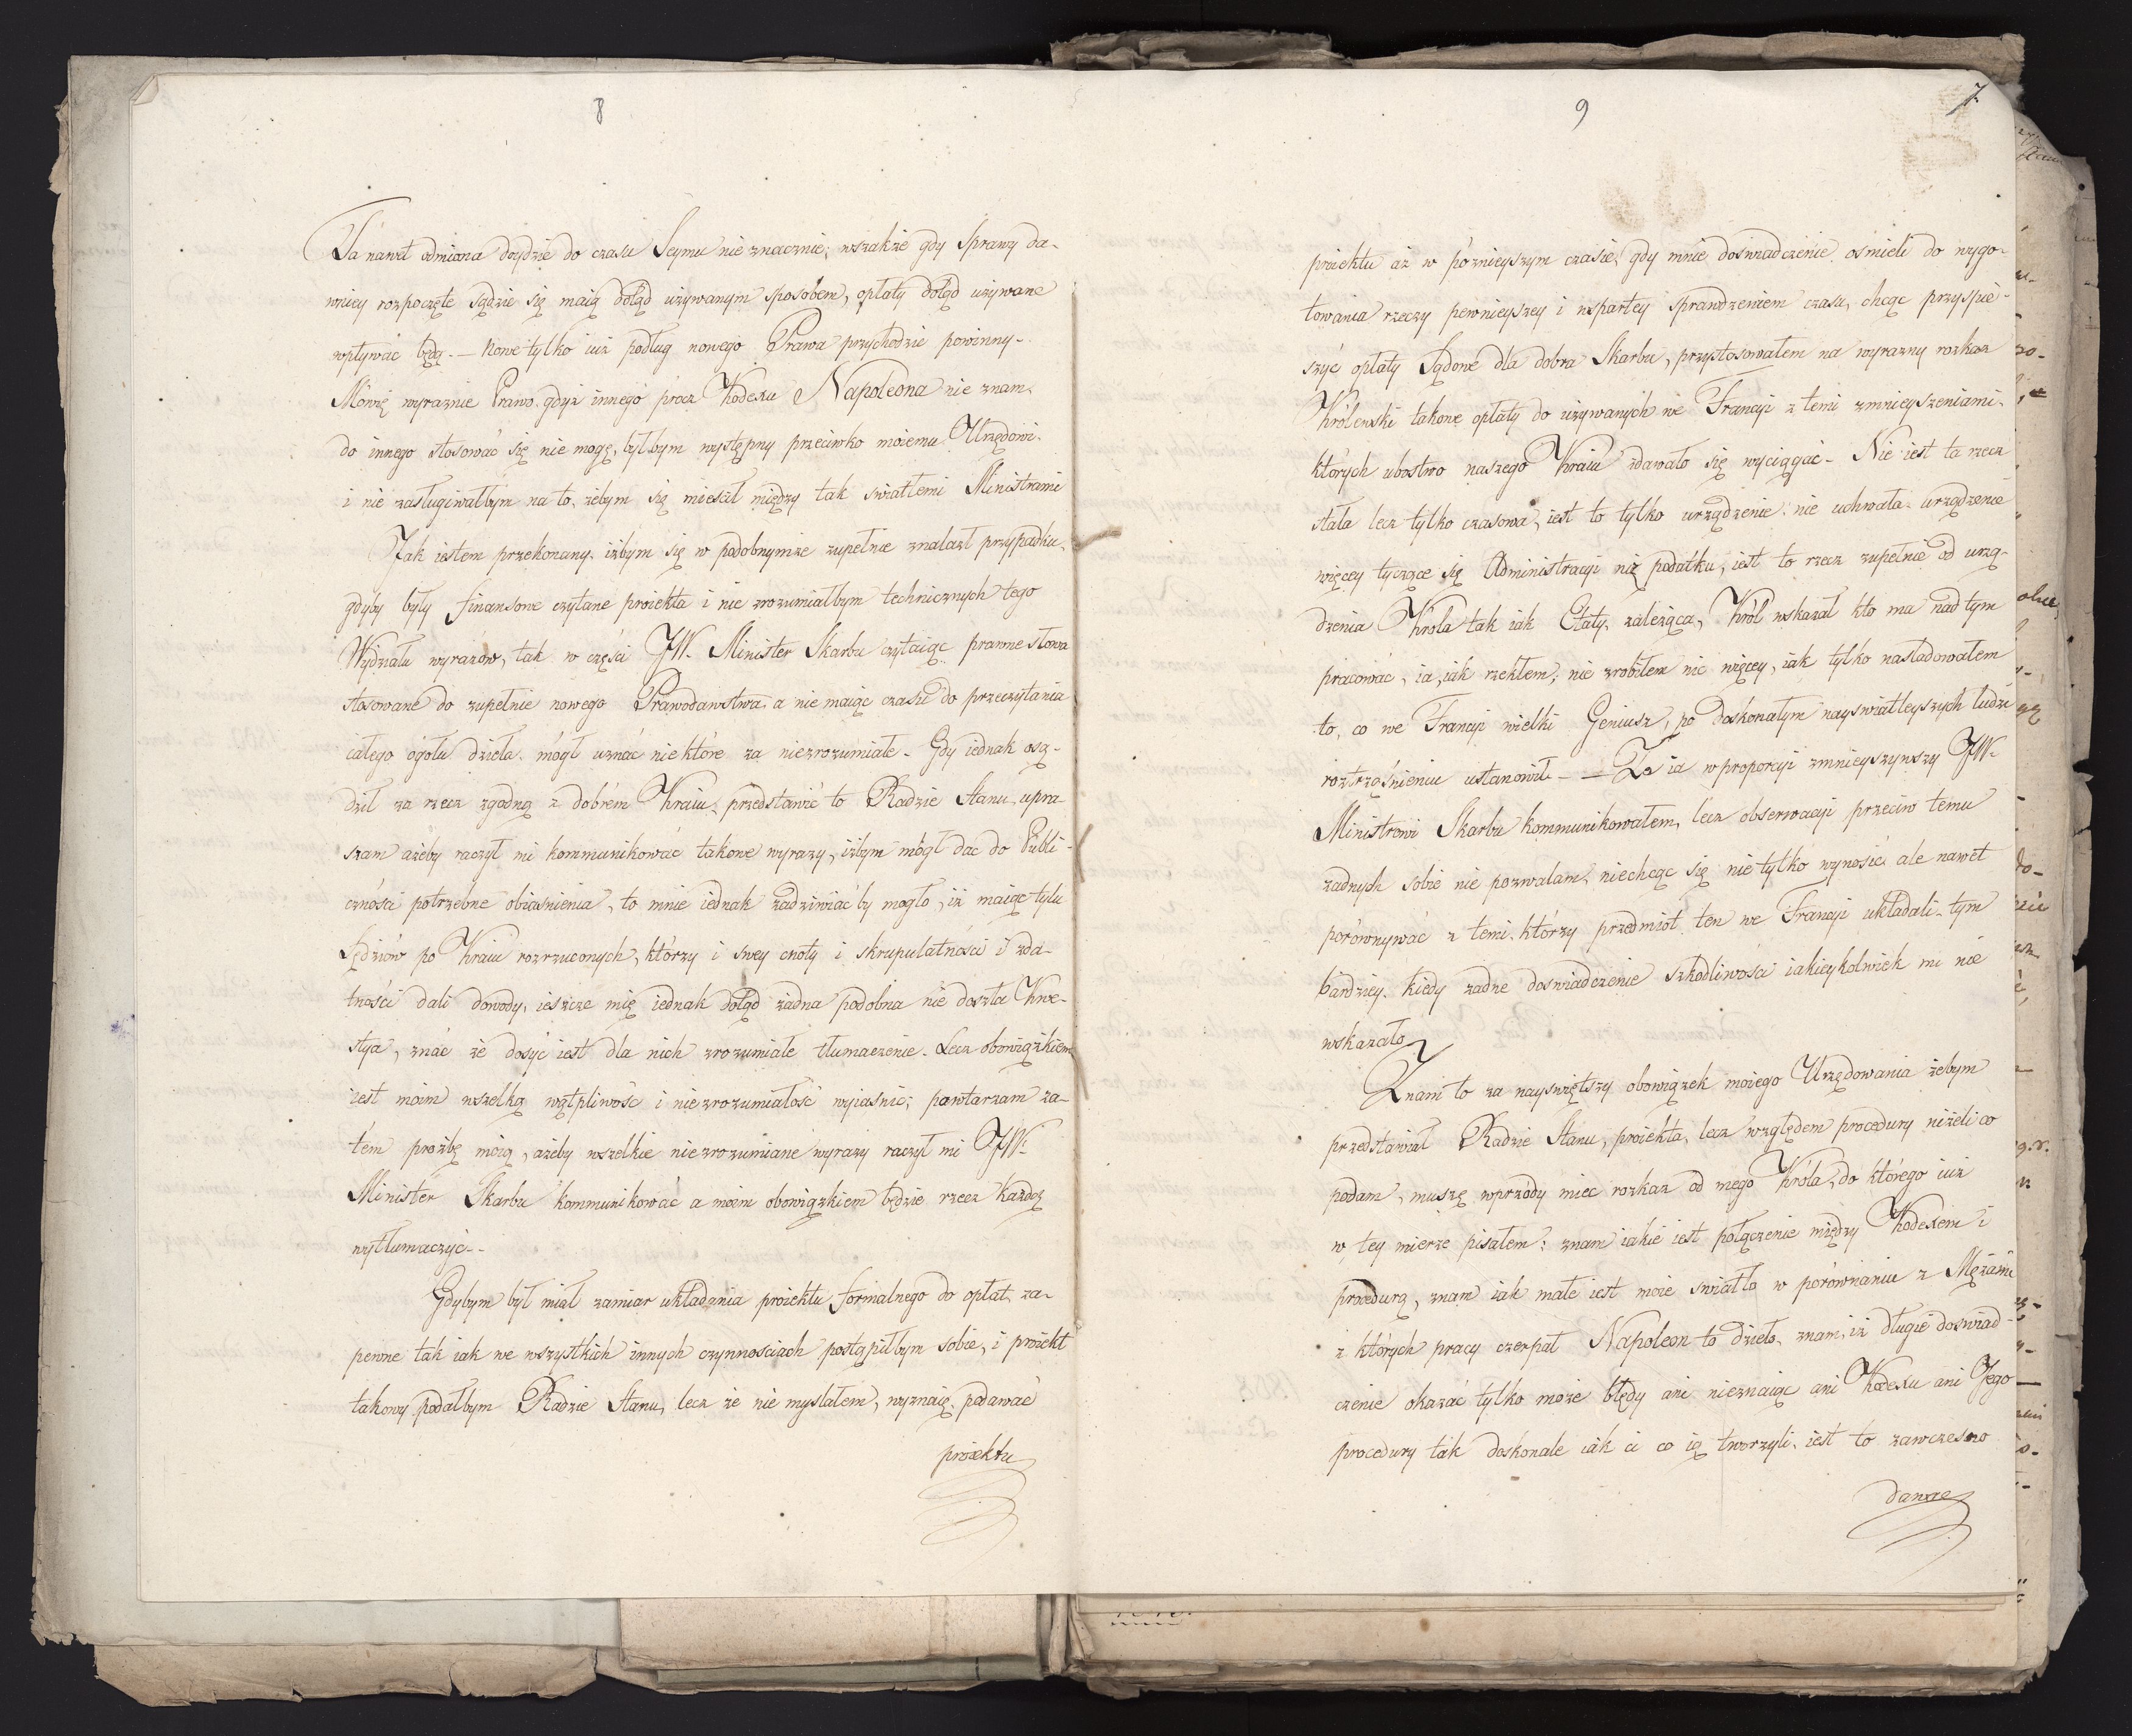 8
Ta nawet odmiana doydzie do czasu Seymu nie znacznie; wszakże gdy Sprawy da-
wniey rozpoczęte sądzić się maią dotąd używanym sposobem, opłaty dotąd używane
wpływać będą. — Nowe tylko iuż podług nowego Prawa przychodzić powinny.-
Mówię wyraznie Prawo. gdyż innego procz Kodexu Napoleona nie znam.
do innego stosować się nie mogę, byłbym występny przeciwko moiemu Urzędowi.
i nie zasługiwałbym na to, żebym się mieścił między tak swiatłemi Ministrami
Jak iestem przekonany, iżbym się w podobnymże zupełnie znalazł przypadku,
gdyby były finansowe czytane proiekta i nie zrozumiałbym technicznych tego
Wydziału wyrazow, tak w części JW. Minister Skarbu czytaiąc prawne słowa
stosowane do zupełnie nowego Prawodawstwa. a nie maiąc czasu do przeczytania
całego ogołu dzieła. mógł uznać niektóre za niezrozumiałe. Gdy iednak osą-
dził za rzecz zgodną z dobrém Kraiu, przedstawić to Radzie Stanu, upra-
szam ażeby raczył mi kommunikować takowe wyrazy, iżbym mógł dac do Publi-
czności potrzebne obiasnienia, to mnie iednak zadziwiać by mogło, iż maiąc tylu
Sędziów po Kraiu rozrzuconych, którzy i swey cnoty i skrupulatności i zda-
tności dali dowody, ieszcze mię iednak dotąd żadna podobna nie doszła Kwe-
stya, znać że dosyć iest dla nich zrozumiałe tłumaczenie. Lecz obowiązkiem
iest moim wszelką wątpliwośc i niezrozumiałość wyiasnić; pawtarzam za-
tém prożbę moią, ażeby wszelkie niezrozumiane wyrazy raczył mi JW.
Minister Skarbu kommunikować a moim obowiązkiem będzie rzecz każdą
wytłumaczyć.-
Gdybym był miał zamiar układania proiektu formalnego do opłat, za-
pewne tak iak we wszystkich innych czynnościach postąpiłbym sobie, i proiekt
takowy podałbym Radzie Stanu, lecz że nie myslałem, wyznaię, podawać
proiektu
9
7
proiektu aż w poznieyszym czasie, gdy mnie doswiadczenie osmieli do wygo-
towania rzeczy pewnieyszey i wspartey sprawdzeniem czasu, chcąc przyspie-
szyć opłaty Sądowe dla dobra Skarbu, przystosowałem na wyrazny rozkaz
Królewski takowe opłaty do używanych we Francyi z temi zmnieyszeniami.
których ubostwo naszego Kraiu zdawało się wyciągać. Nie iest ta rzecz
stała lecz tylko czasowa, iest to tylko urządzenie. nie uchwała. urządzenie
więcey tyczące się Administracyi niż podatku, iest to rzecz zupełnie od urzą-
dzenia Króla tak iak Etaty. zależąca, Król wskazał kto ma nad tym
pracować, ia, iak rzekłem, nie zrobiłem nic więcey, iak tylko nasladowałem
to, co we Francyi wielki Geniusz, po doskonałym nayswiatleyszych ludzi
roztrząśnieniu ustanowił — — To ia w proporcyi zmnieyszywszy JW.
Ministrowi Skarbu kommunikowałem, lecz obserwacyi przeciw temu
zadnych sobie nie pozwalam, niechcąc się nie tylko wynosić ale nawet
porównywać z temi, którzy przedmiot ten we Francyi układali. tym
bardziey. kiedy zadne doswiadczenie szkodliwości iakieykolwiek mi nie
wskazało
Znam to za nayswiętszy obowiązek moiego Urzędowania żebym
przedstawiał Radzie Stanu, proiekta, lecz względem procedury niżeli co
podam, muszę wprzody miec rozkaz od mego Króla, do którego iuż
w tey mierze pisałem: znam iakie iest połączenie między Kodexem i
procedurą, znam iak małe iest moie swiatło w porównaniu z Mężami
z których pracy czerpał Napoleon to dzieło, znam, iż długie doswiad-
czenie okazać tylko może błędy ani nieznaiąc ani Kodexu ani Jego
procedury tak doskonale iak ci co ią tworzyli. iest to zawczesno
dawne